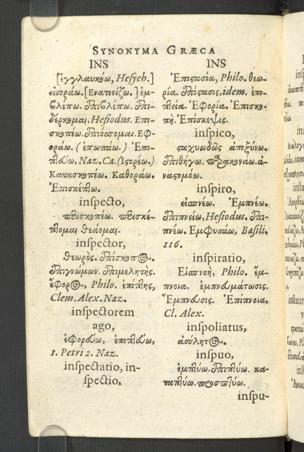 SYNONYMA GRÆCA
INS
[ἐγγλαυκόω, Hesych.]
εἰσοράω. [Ενατενίζω.] ἐμ-
βλέπω. ἐπιβλέπω. ἐπι-
δέρκομαι. Hesiodus. Ἐπι-
σκοπέω. ἐπιόσσομαι. Εφ-
οράω. (ἐπωπάω.) Ἐπο-
πτεύω, Naz. Ca. (Ἱσορέω.)
Κατασκοπέω. Καθοράω.
Ἐπισκέπτω.
inspecto,
περισκοπέω. περισκέ-
πτομαι θεάομαι.
inspector,
θεωρὸς. ἐπίσκοπος.
ἐπιγνώμων. ἐπιμελητής.
ἔφορος, Philo. ἐπόπτης,
Clem. Alex. Naz.
inspectorem
ago,
ἐφορεύω, ἐποπτεύω,
1. Petri 2. Naz.
inspectatio, in-
spectio.
INS
Ἐπιστασία, Philo. θεω-
ρία. ἐπίστασις, idem. ἐπο-
πτεία. Ἐφορία. Ἐπισκο-
πή. Ἐπίσκεψις.
inspico,
σαχυωδῶς ἀποξύνω.
ἐπιθήγω. παρακονάω. ἀ-
νασομόω.
inspiro,
εἰσπνέω. Ἐμπνέω.
ἐπιπνέω, Hesiodus. ἐπι-
πνέω. Εμφυσάω, Basili.
116.
inspiratio,
Εἰσπνοὴ, Philo. ἔμ-
πνοια. ἐμπνευμάτωσις.
Ἔμπνευσις. Ἐπίπνοια,
Cl. Alex.
inspoliatus,
ἀσύλητος.
inspuo,
ἐμπτύω. ἐπιπτύω. κα-
ταπτύω. προσπτύω.
inspu-